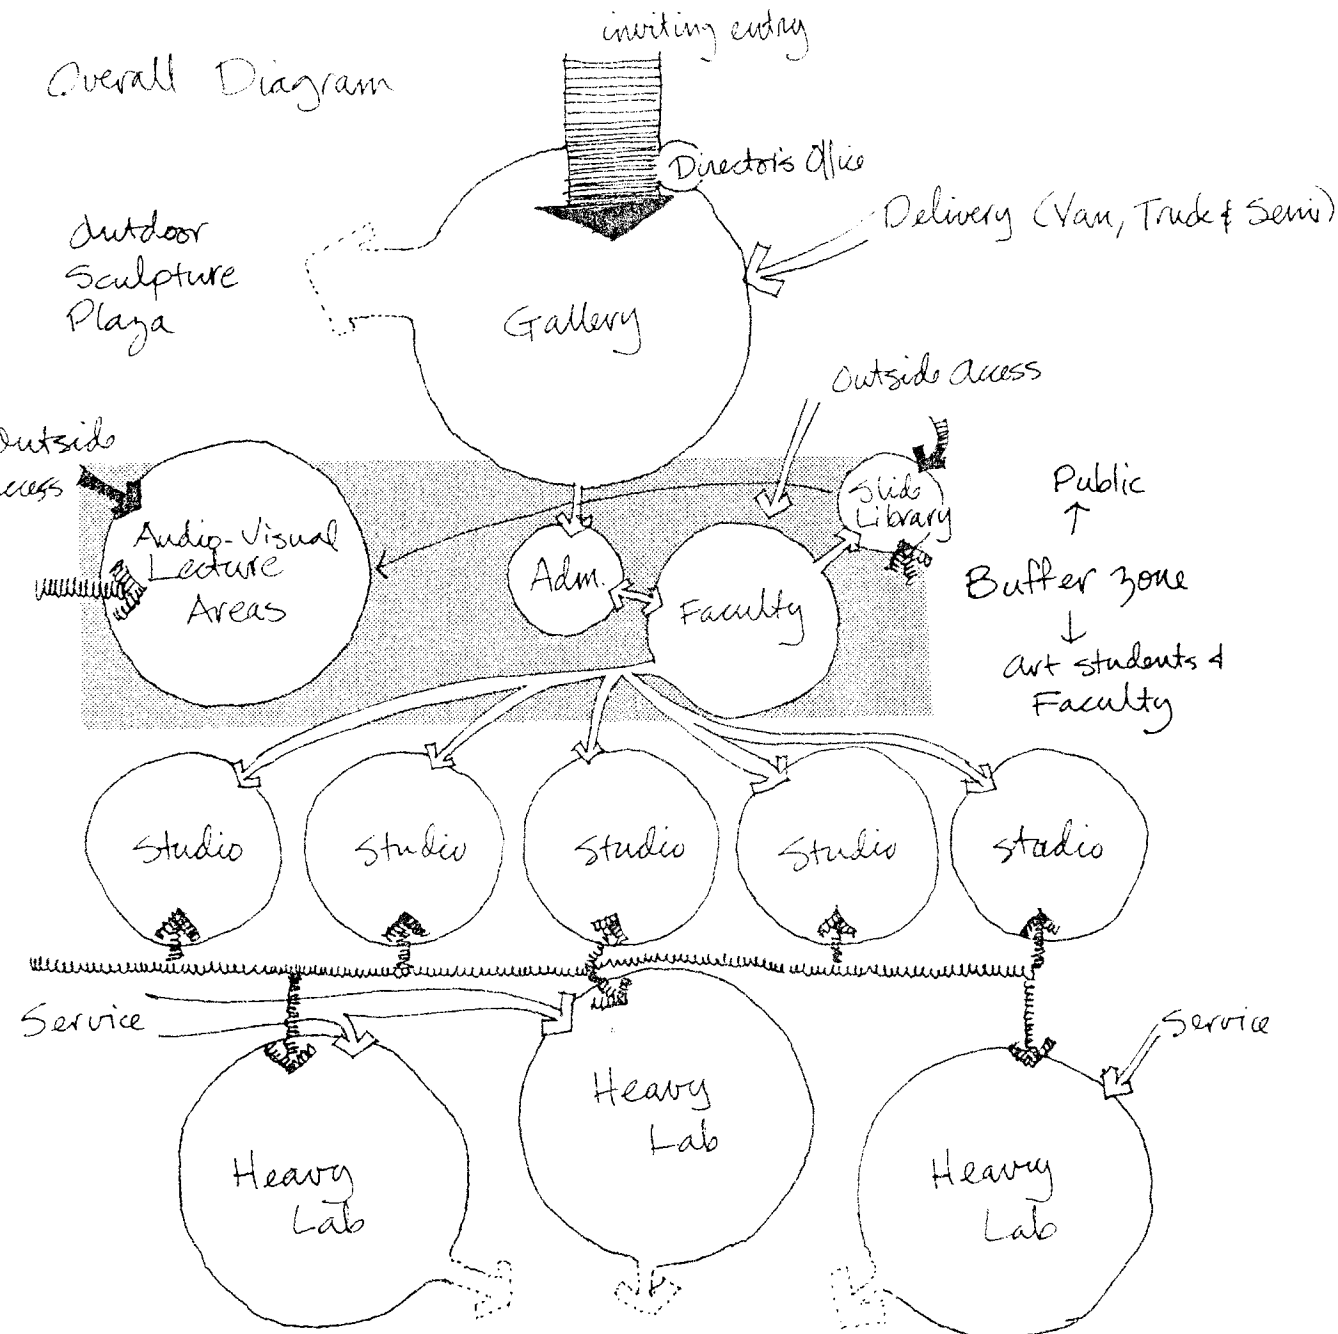 inviting entry
Overall Diagram
Director's Office
Delivery (Van, Truck & Semi)
Outdoor
Sculpture
Plaza
Gallery
Outside Access
Outside
Access
Slide
Library
Public
Audio-Visual
Lecture
Areas
Adm.
Faculty
Buffer zone
Art students &
Faculty
Studio
Studio
Studio
Studio
Studio
Service
Service
Heavy
Lab
Heavy
Lab
Heavy
Lab